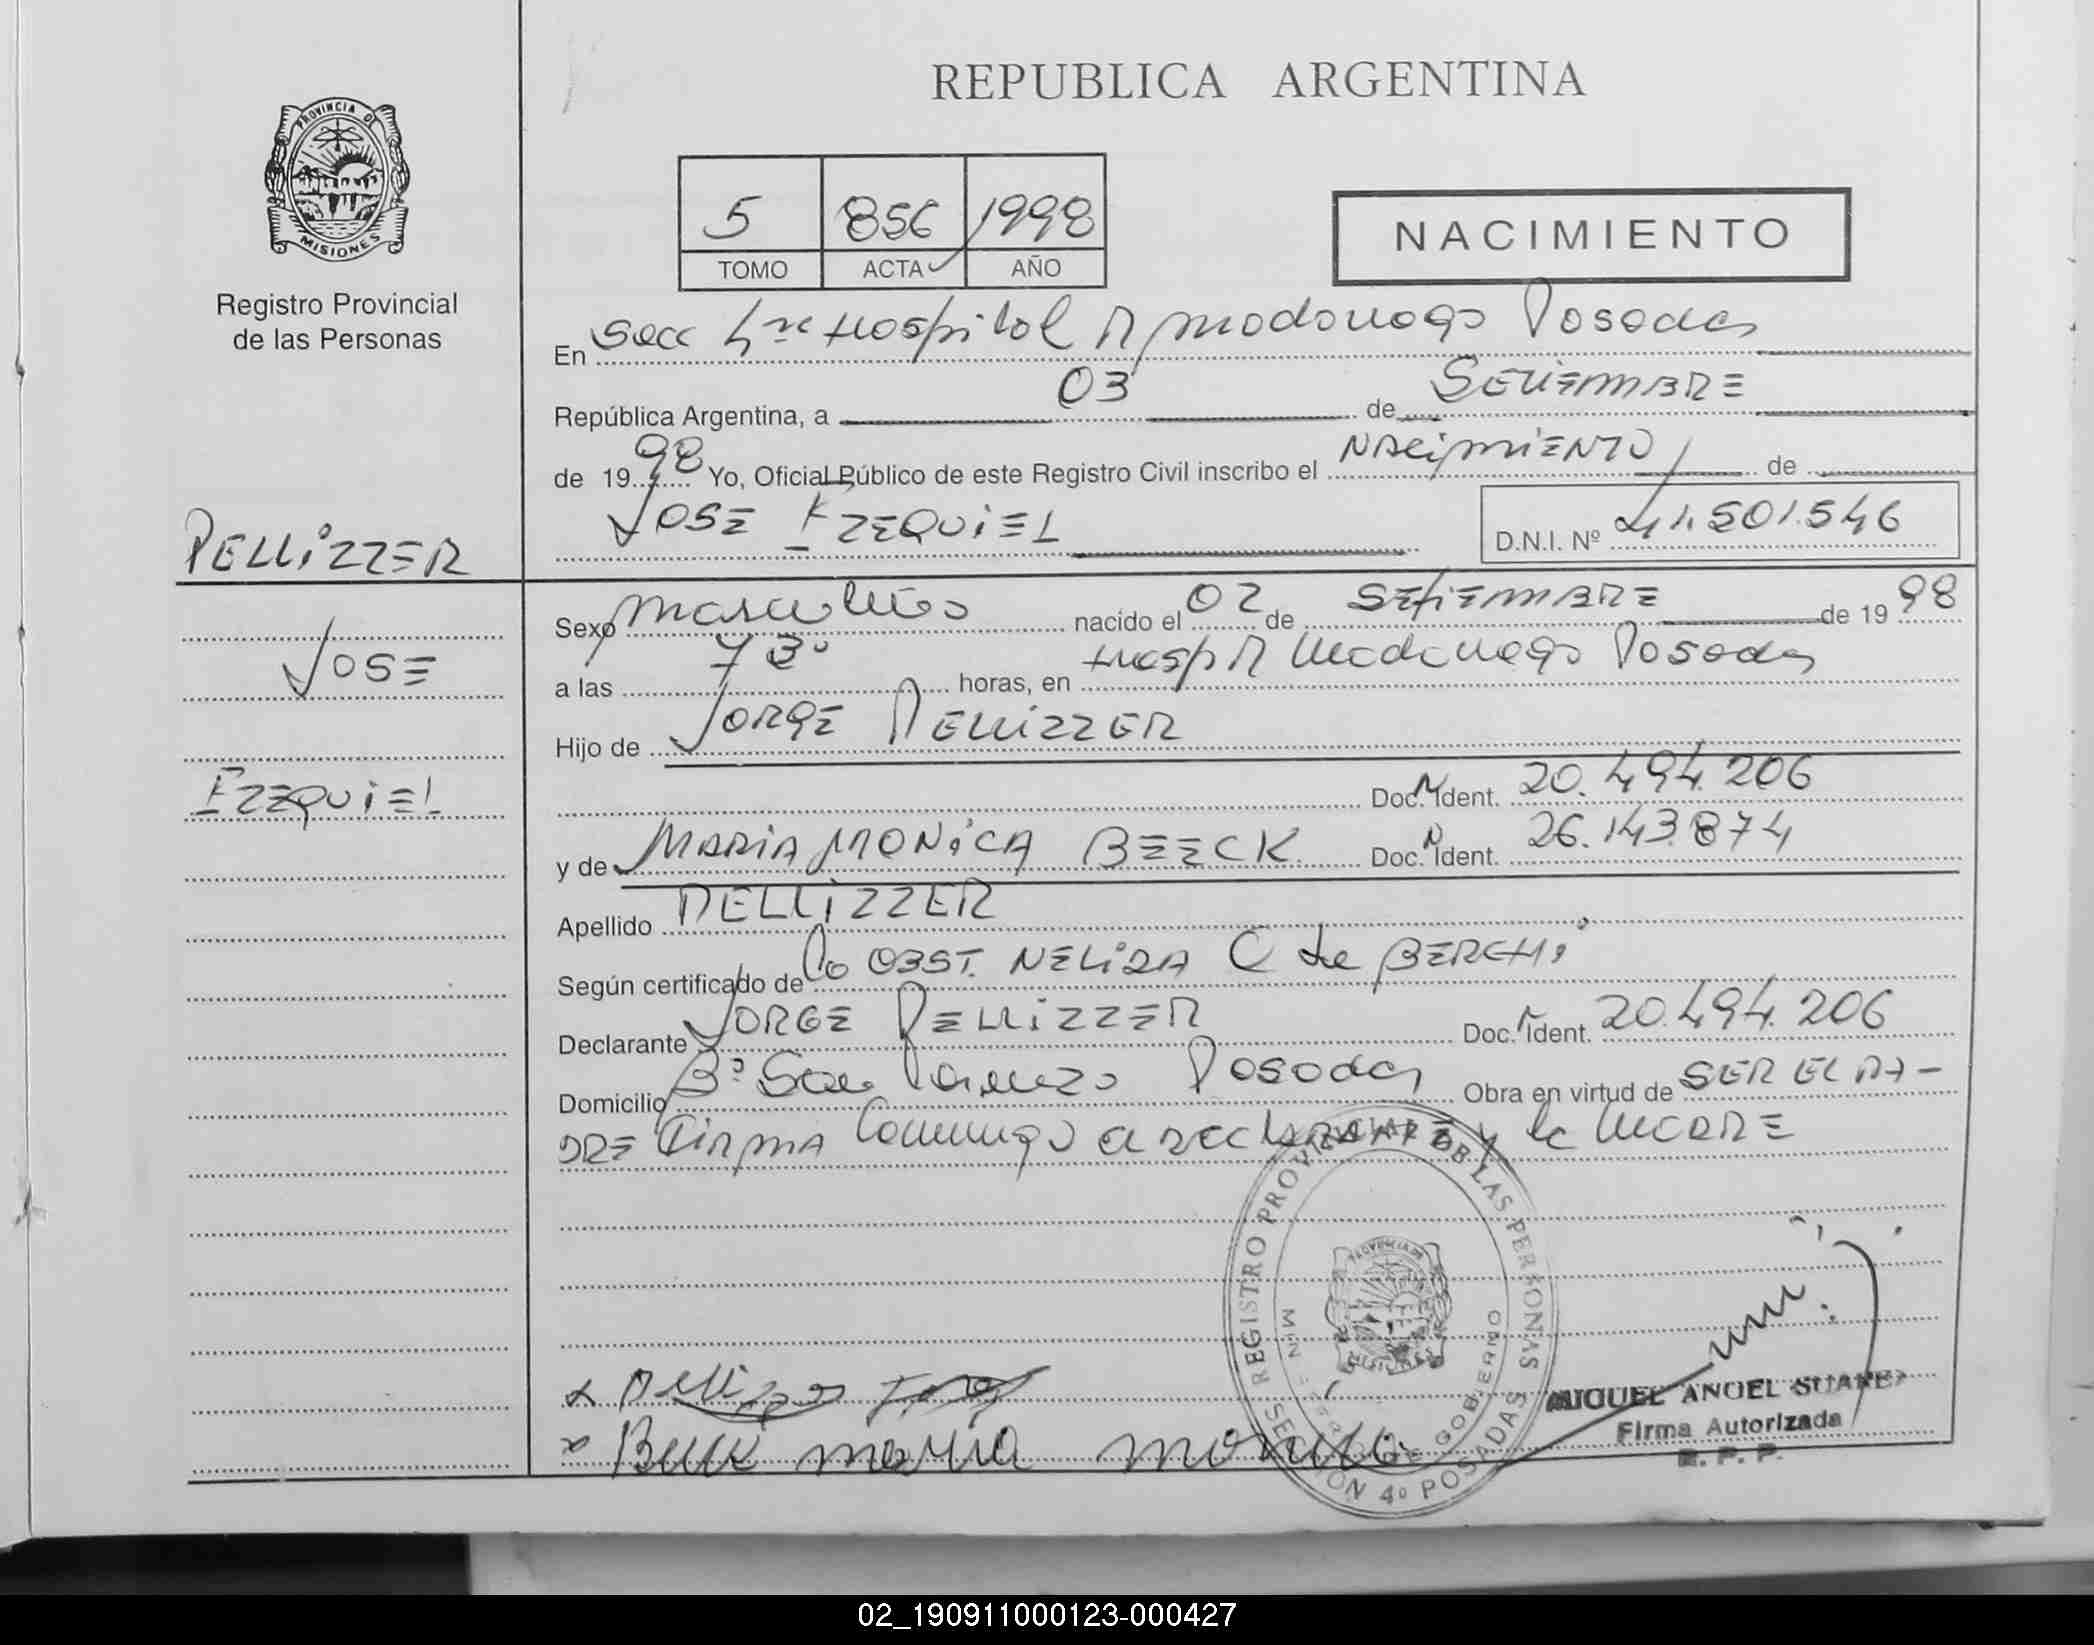 PROVINCIA DE
MISIONES
Registro Provincial
de las Personas
REPUBLICA ARGENTINA
5 856 1998
TOMO ACTA AÑO
NACIMIENTO
En Secc 4ta Hospital R Madariaga Posadas
República Argentina, a 03 de SETIEMBRE
de 1998 Yo, Oficial Público de este Registro Civil inscribo el NACIMIENTO de
JOSE EZEQUIEL D.N.I. Nº 41.501.546
PELLIZZER
JOSE
EZEQUIEL
Sexo masculino nacido el 02 de SETIEMBRE de 1998
a las horas, en Hosp R Madariaga Posadas
Hijo de JORGE PELLIZZER
Doc. N Ident. 20.494.206
y de MARIA MONICA BEECK Doc. N Ident. 26.143.874
Apellido PELLIZZER
Según certificado de la OBST. NELIDA C de BERCHI
Declarante JORGE PELLIZZER Doc. Ident. 20.494.206
Domicilio Bº San Lorenzo Posadas Obra en virtud de SER EL PA-
DRE FIRMA conmigo el DECLARANTE y la MADRE
REGISTRO PROVINCIAL DE LAS PERSONAS
MIN DE GOBIERNO
SECCIÓN 4º POSADAS
Pellizzer Jorge
Beeck maria monica
MIGUEL ANGEL SUAREZ
Firma Autorizada
R. P. P.
02_190911000123-000427